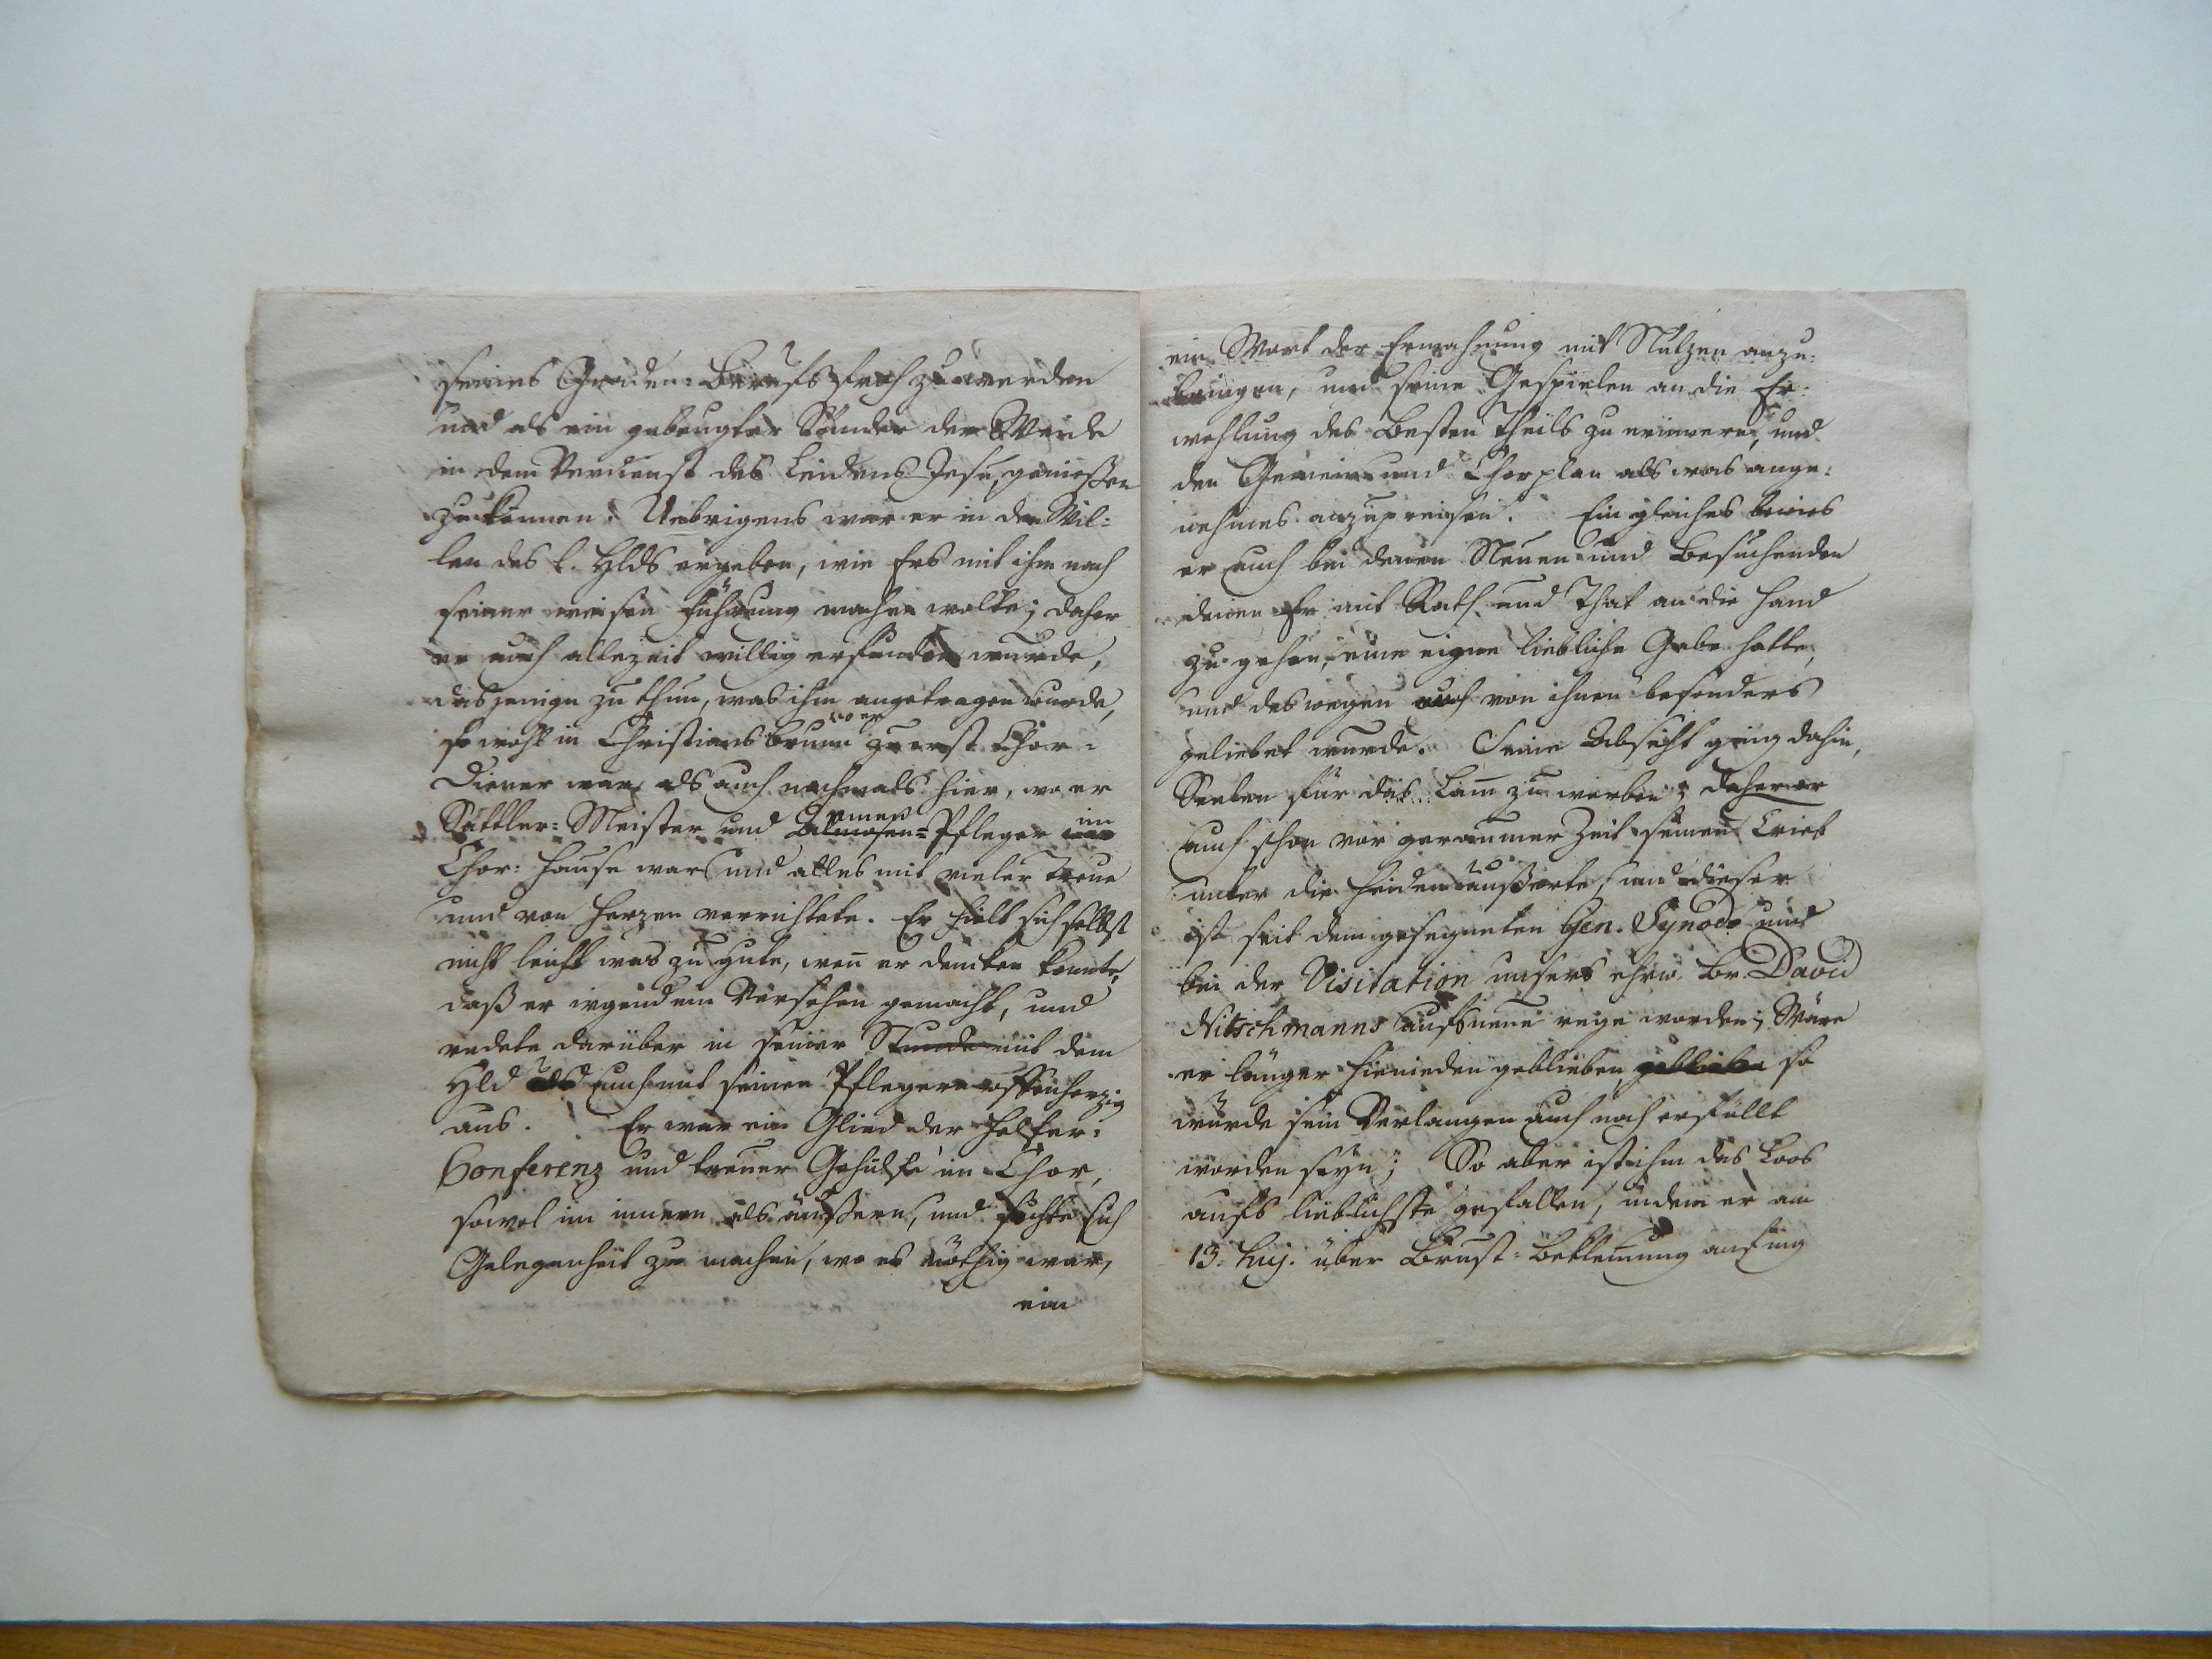 seines Gnaden-Berufs froh zu werden
und als ein gebeugter Sünder der Weide
in dem Verdienst des Leidens Jesu, genießen
zu können. Uebrigens war er in den Wil-
len des l. Hlds ergeben, wie Ers mit ihm nach
seiner weisen Führung machen wolte; daher
er auch allezeit willig erfunden wurde,
dasjenige zu thun, was ihm angetragen wurde,
so wohl in Christiansbrunn wo er zuerst Chor-
Diener war, als auch nachmals hier, wo er
Sattler-Meister und Almosen-Pfleger im
Chor-Hause war, und alles mit vieler Treue
und von Herzen verrichtete. Er hielt sich selbst
nicht leicht was zu gute, weñ er dencken konnte,
daß er irgend ein Versehen gemacht, und
redete darüber in seiner Stunde mit dem
Hld und auch mit seinen Pflegern offenherzig
aus. Er war ein Glied der Helfer-
Conferenz und treuer Gehülfe im Chor,
sowol im innern als äußern, und suchte sich
Gelegenheit zu machen, wo es nöthig war,
ein
ein Wort der Ermahnung mit Nutzen anzu-
bringen, und seine Gespielen an die Er-
wehlung des Besten Theils zu erinnern, und
den Gemein und Chorplan als was ange-
nehmes anzupreisen. Ein gleiches bewies
er auch bei denen Neuen und Besuchenden
denen Er mit Rath und That an die Hand
zu gehen, eine eigne liebliche Gabe hatte,
und deswegen auch von ihnen besonders
geliebet wurde. Seine Absicht ging dahin,
Seelen für das Lam̃ zu werben; daher er
auch schon vor geraumer Zeit seinen Trieb
unter die Heiden zu äußerte, und dieser
ist seit dem gesegneten Gen. Synodo und
bei der Visitation unsers ehrw. Br. David
Nitschmanns aufs neue rege worden; Wäre
er länger hienieden geblieben, geblieben so
würde sein Verlangen auch noch erfüllt
worden seyn; So aber ist ihm das Loos
aufs lieblichste gefallen, indem er am
13. huj. über Brust-Beklem̃ung anfing